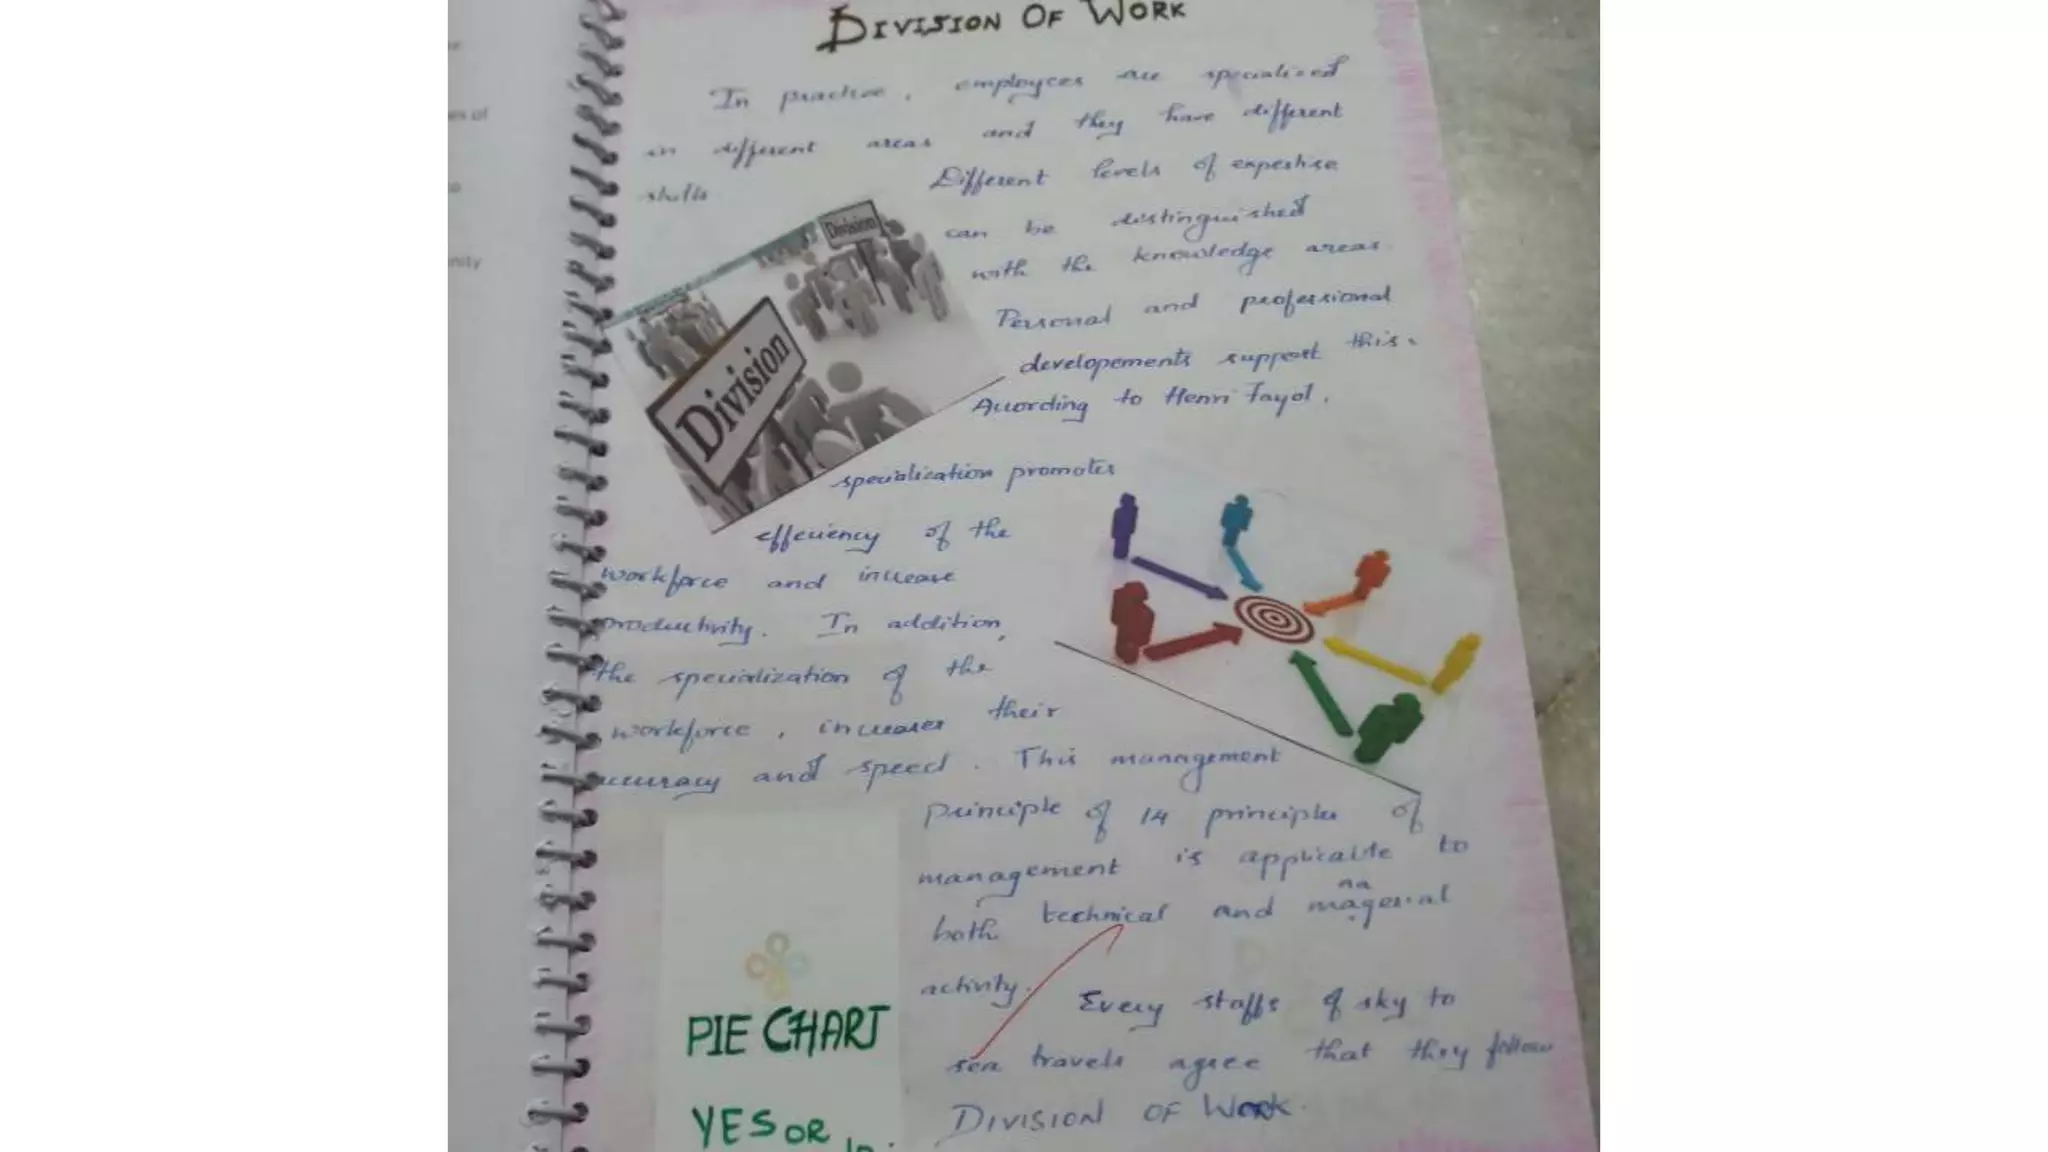 DIVISION OF WORK
In practice, employees are specialized
in different areas and they have different
skills. Different levels of expertise
can be distinguished
with the knowledge areas
Personal and professional
developements support this.
According to Henri Fayol,
Division
Division
specialization promotes
effeciency of the
workforce and increase
productivity. In addition,
the specialization of the
workforce, increases their
accuracy and speed. This management
principle of 14 principles of
management is applicable to
both technical and magerial
na
activity. Every staffs of sky to
sea travels agree that they follow
DIVISION OF WORK.
PIE CHART
YES OR
es of
nity